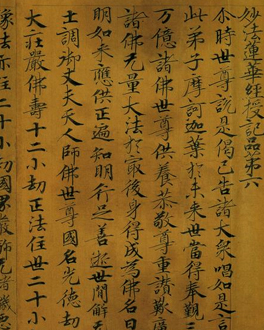 妙法蓮華經授記品第六
尒時世尊說是偈已告諸大衆唱如是言
此弟子摩訶迦葉於未來世當得奉覲三
万億諸佛世尊供養恭敬尊重讚歎廣
諸佛无量大法於最後身得成爲佛名曰
明如來應供正遍知明行足善逝世間解无
士調御丈夫天人師佛世尊國名光德劫
大莊嚴佛壽十二小劫正法住世二十小
像法亦住二十小劫國界嚴飾无諸穢惡